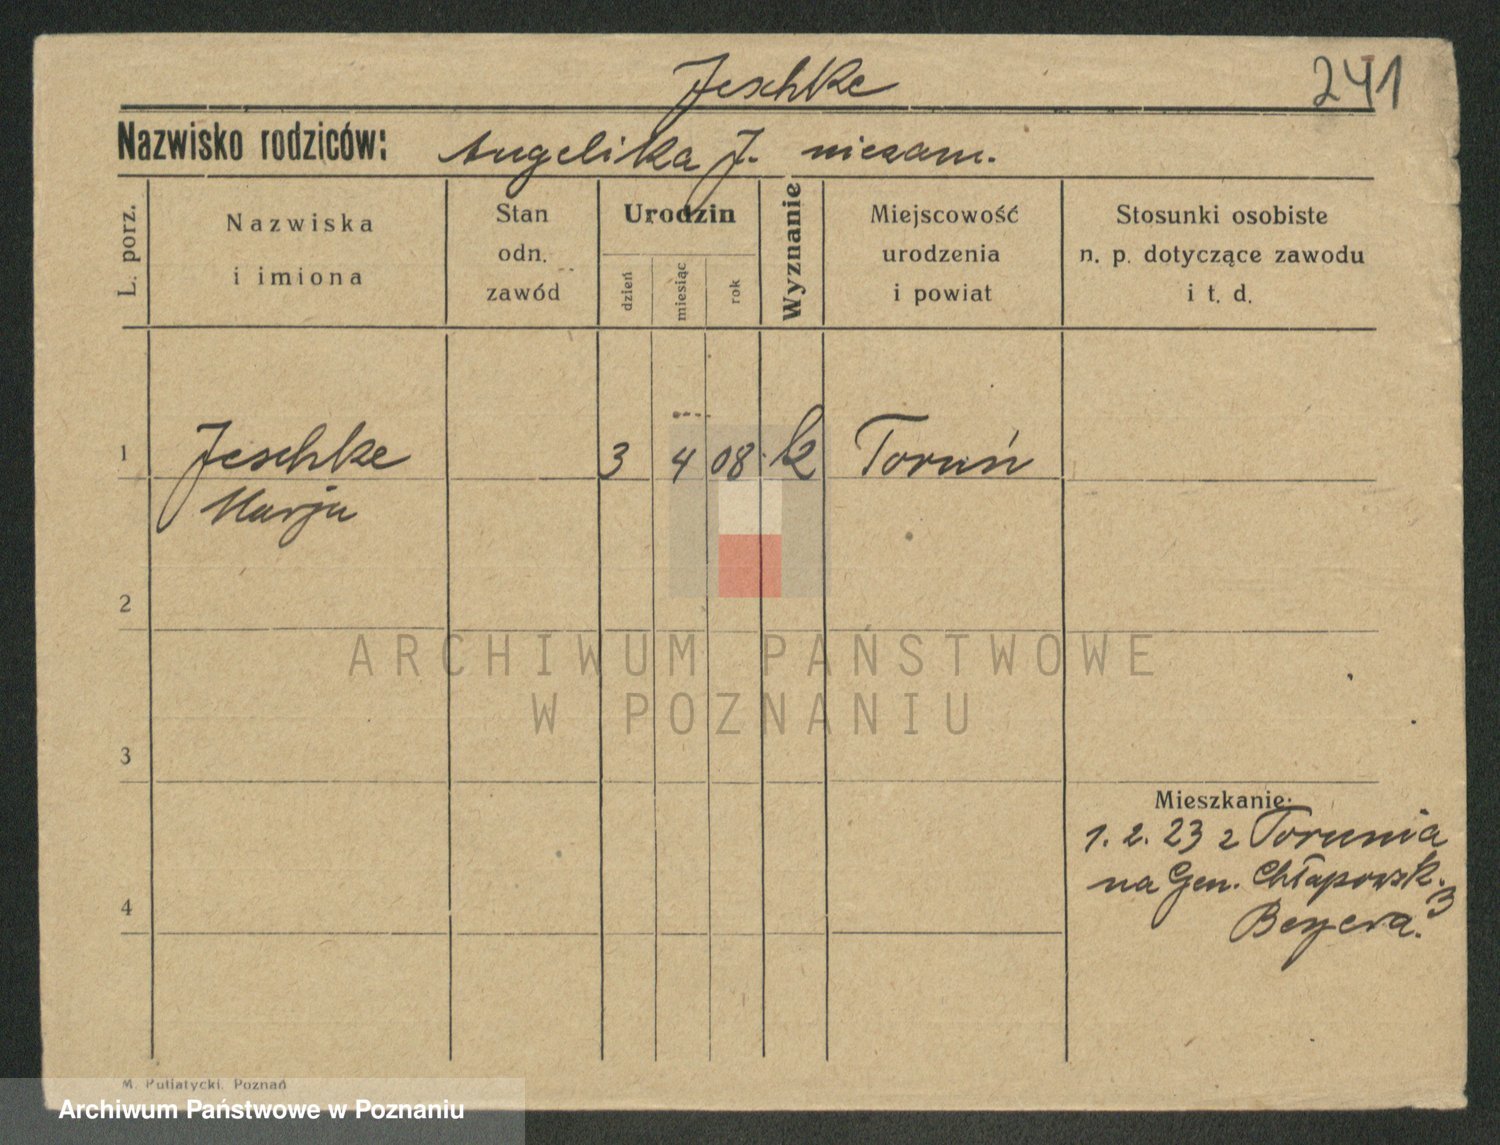 Jeschke
241
Nazwisko rodziców: Angelika J. niezam.
L. porz.
Nazwiska
i imiona
Stan
odn.
zawód
Urodzin
dzień
miesiąc
rok
Wyznanie
Miejscowość
urodzenia
i powiat
Stosunki osobiste
n. p. dotyczące zawodu
i t. d.
1 Jeschke 3 4 08 k Toruń
Marja
2
ARCHIWUM PAŃSTWOWE
W POZNANIU
3
Mieszkanie:
1. 2. 23 z Torunia
na Gen. Chłapowsk. 3
4
Beyera.
M. Putiatycki, Poznań
Archiwum Państwowe w Poznaniu